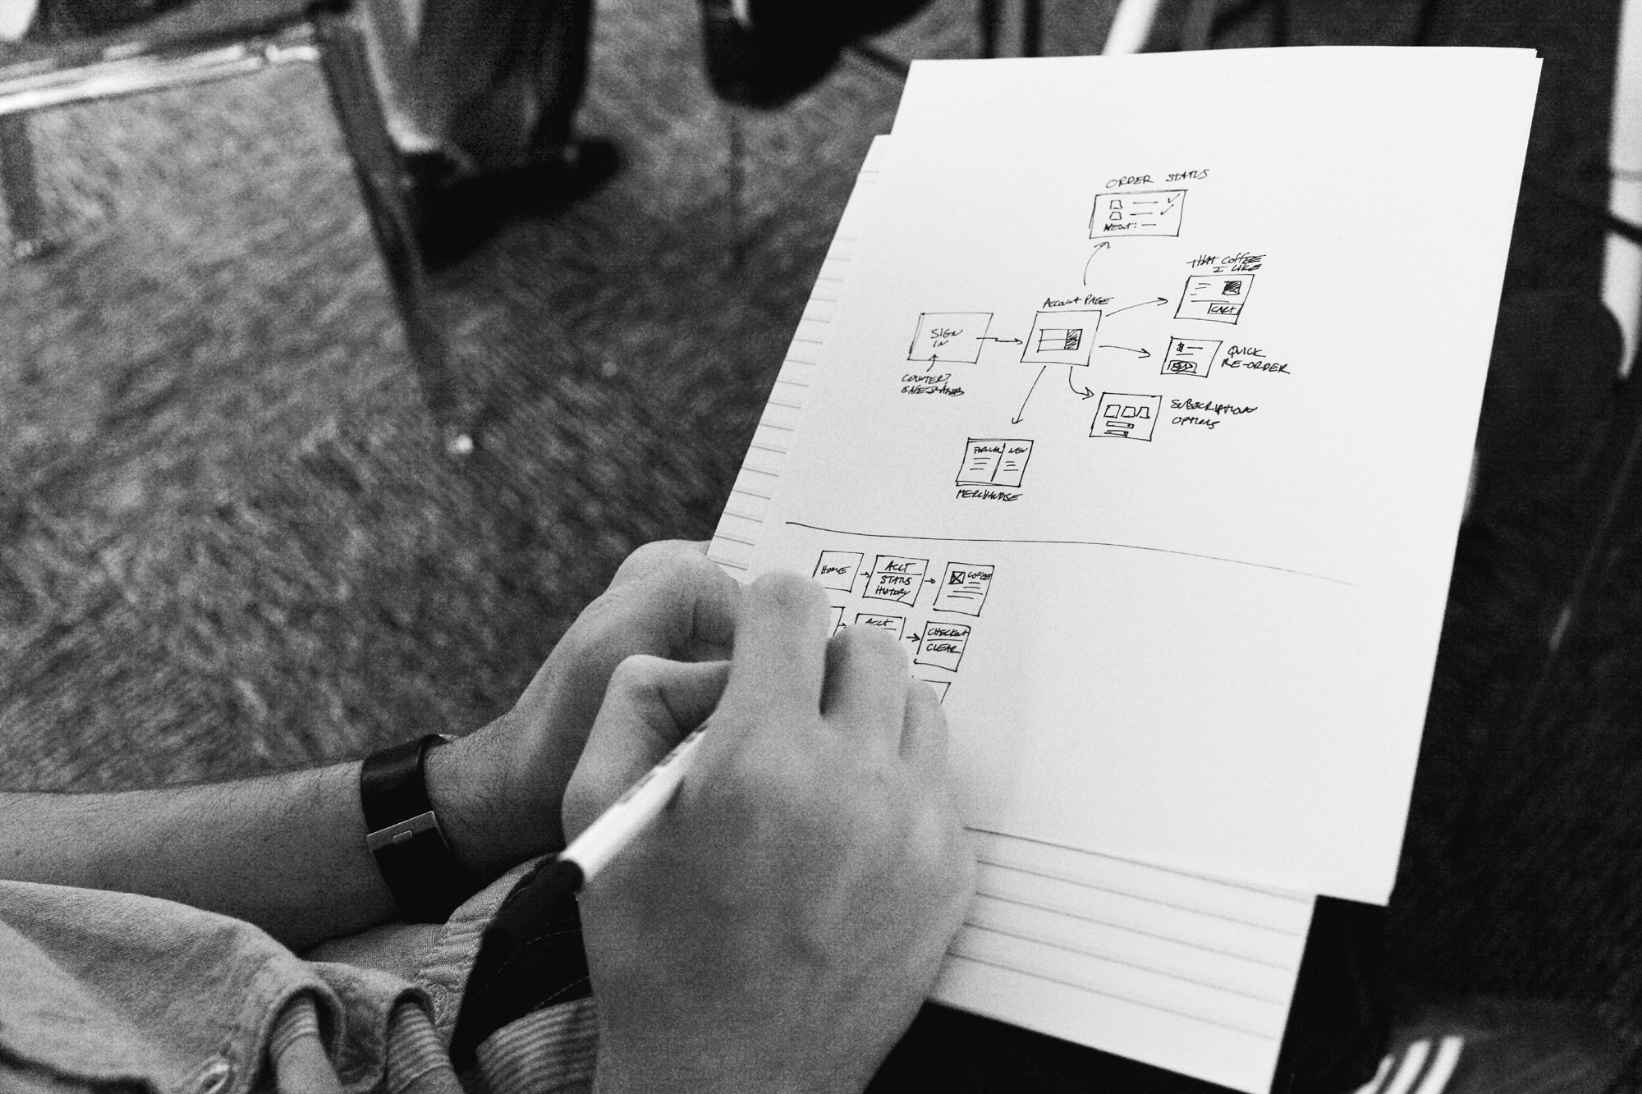 ORDER STATUS
NEXT:
THAT COFFEE
I LIKE
CART
ACCOUNT PAGE
SIGN
IN
QUICK
RE-ORDER
SUBSCRIPTION
OPTIONS
NEW
MERCHANDISE
HOME
ACCT
STATUS
HISTORY
COFFEE
ACCT
CHECKOUT
CLEAR